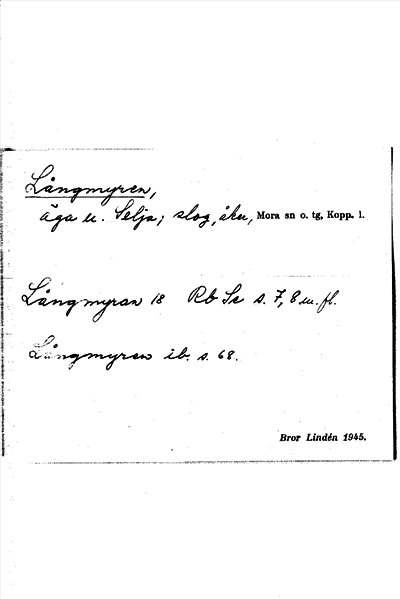 Långmyren,
äga u. Selja; slog, åker, Mora sn o. tg, Kopp. l.
Långmyran 18 Rb Se s. 7, 8 m. fl.
Långmyren ib. s. 68.
Bror Lindén 1945.